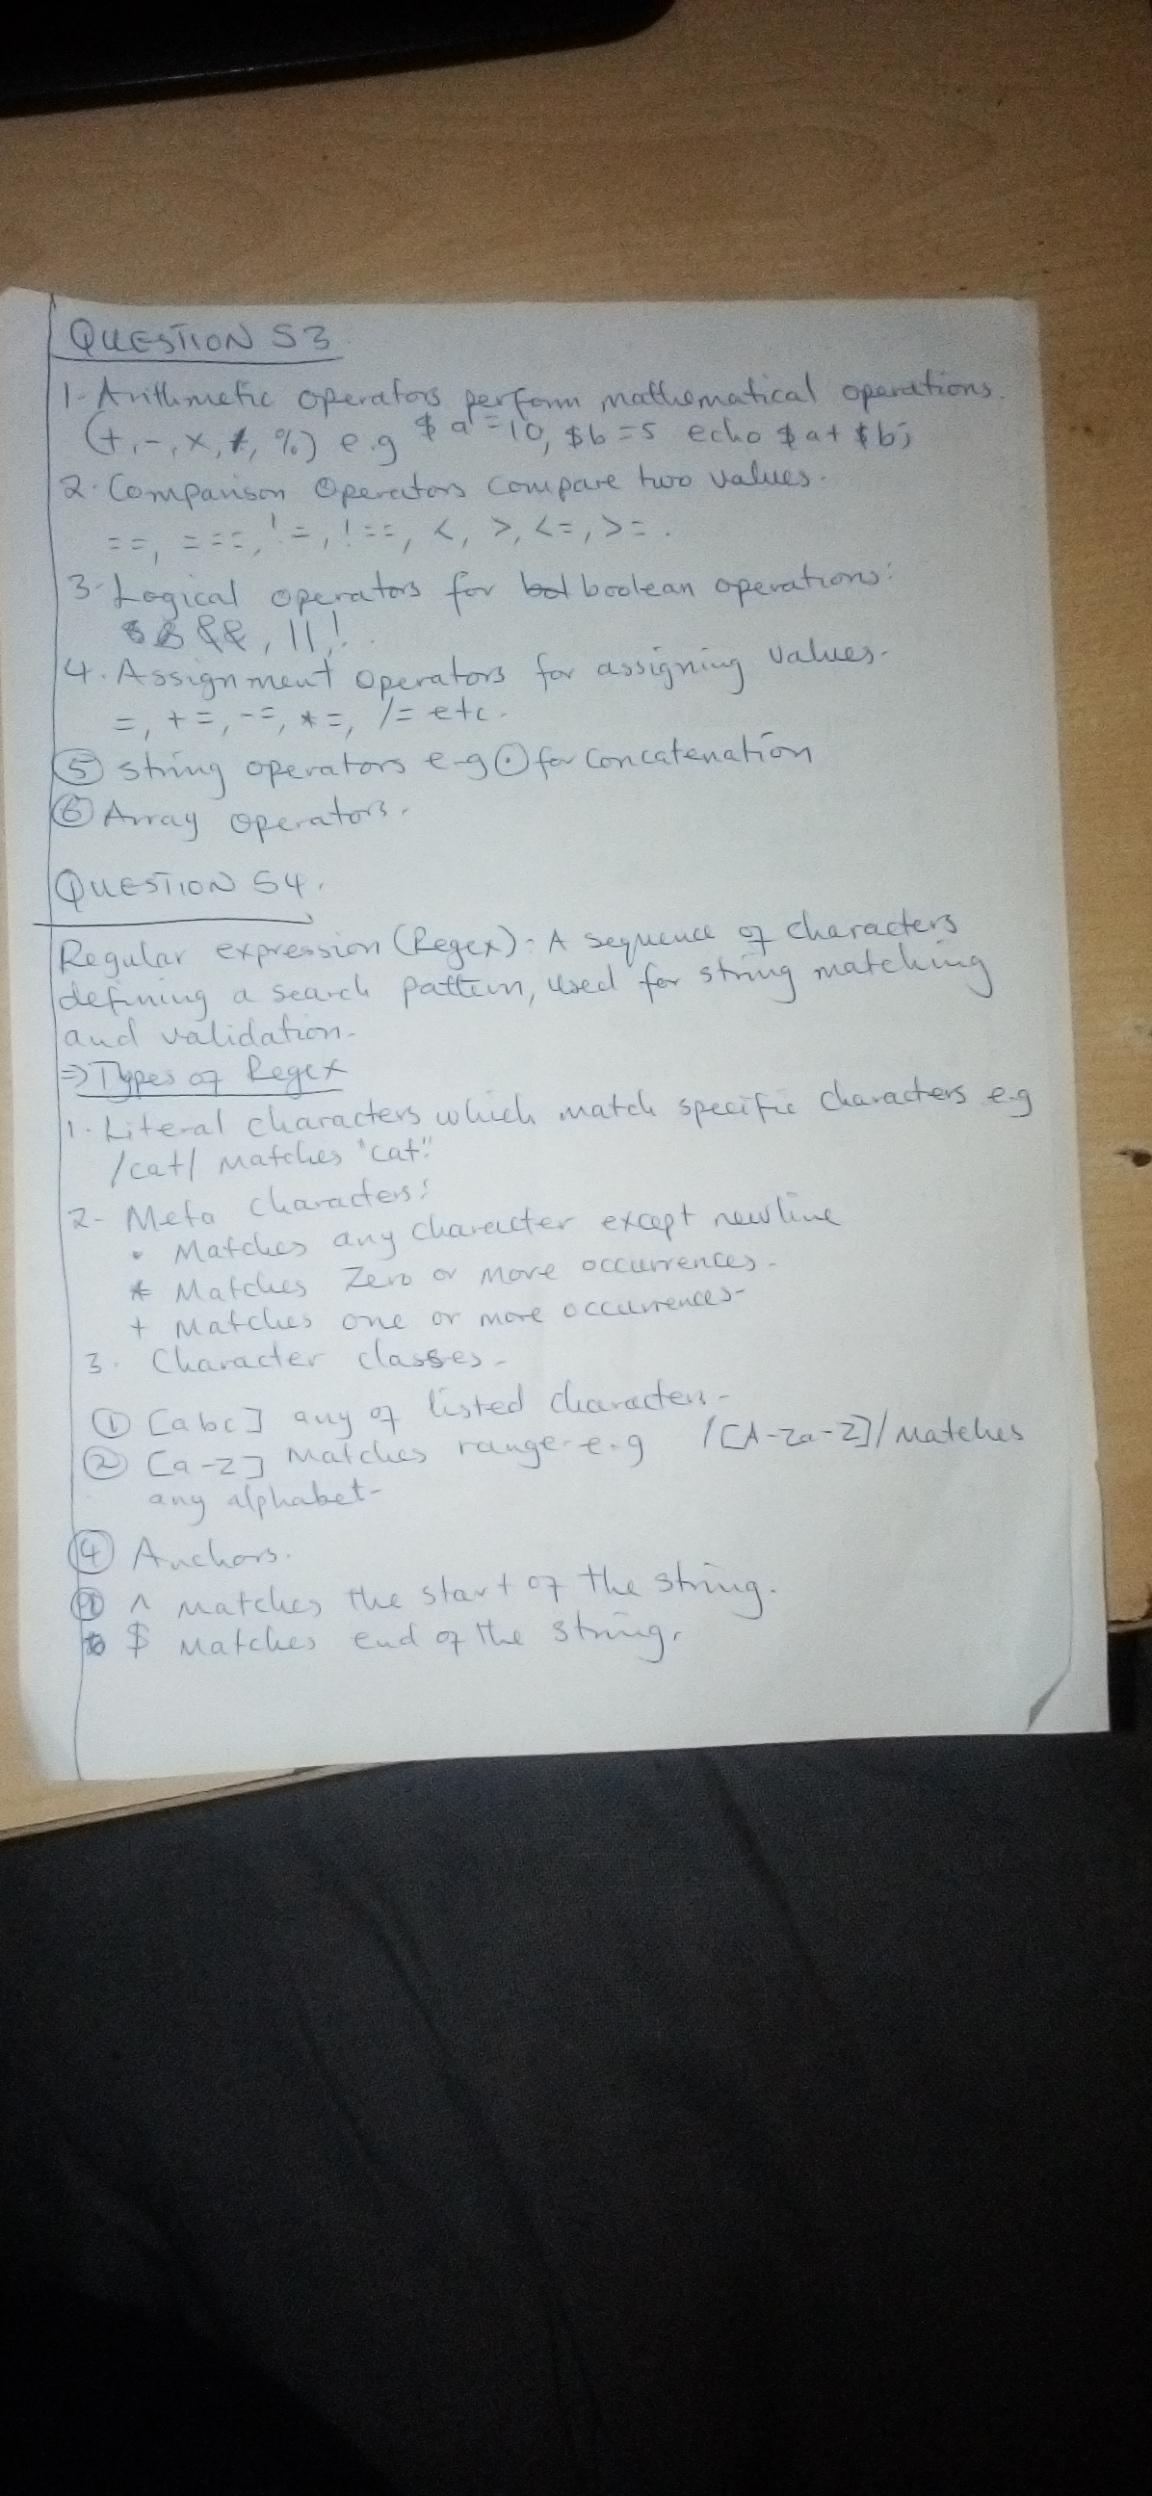 QUESTION 53
1. Arithmetic operators perform mathematical operations.
(+, -, x, /, %) e.g $a = 10, $b = 5 echo $a + $b;
2. Comparison Operators compare two values.
==, ===, !=, !==, <, >, <=, >=.
3. Logical operators for boolean operations:
&&, ||, !.
4. Assignment operators for assigning values.
=, +=, -=, *=, /= etc.
5 String operators e.g . for concatenation
6 Array operators.
QUESTION 54.
Regular expression (Regex): A sequence of characters
defining a search pattern, used for string matching
and validation.
=> Types of Regex
1. Literal characters which match specific characters e.g
/cat/ matches "cat."
2- Meta characters:
. Matches any character except newline
* Matches Zero or more occurrences.
+ Matches one or more occurrences.
3. Character classes.
1 [abc] any of listed characters.
2 [a-z] Matches range e.g /[A-Za-z]/ Matches
any alphabet.
4 Anchors.
^ matches the start of the string.
$ Matches end of the string.